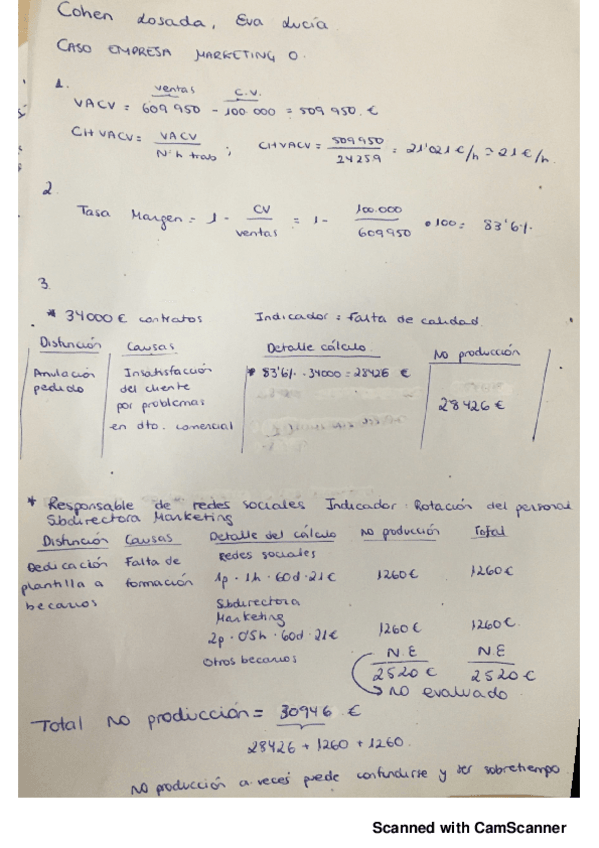 Cohen Losada, Eva Lucía
CASO EMPRESA MARKETING O.
1.
ventas C.V.
VACV = 609 950 - 100.000 = 509 950. €
CHVACV = VACV / Nº h trab ; CHVACV = 509 950 / 24259 = 21'021 €/h ≈ 21 €/h.
2.
Tasa Margen = 1 - CV / ventas = 1 - 100.000 / 609950 • 100 = 83'6%.
3.
* 34000 € contratos Indicador: Falta de calidad
Disfunción Causas Detalle cálculo No producción
Anulación Insatisfacción * 83'6% · 34000 = 28426 €
pedido del cliente 28426 €
por problemas
en dto. comercial
* Responsable de redes sociales Indicador: Rotación del personal
Subdirectora Marketing
Disfunción Causas Detalle del cálculo No producción Total
Dedicación Falta de Redes sociales
plantilla a formación 1p · 1h · 60d · 21€ 1260€ 1260€
becarios Subdirectora
Marketing
2p · 0'5h · 60d · 21€ 1260€ 1260€.
Otros becarios N.E N.E
2520 € 2520 €
No evaluado
Total no producción = 30946 €
28426 + 1260 + 1260.
No producción a veces puede confundirse y ser sobretiempo
Scanned with CamScanner